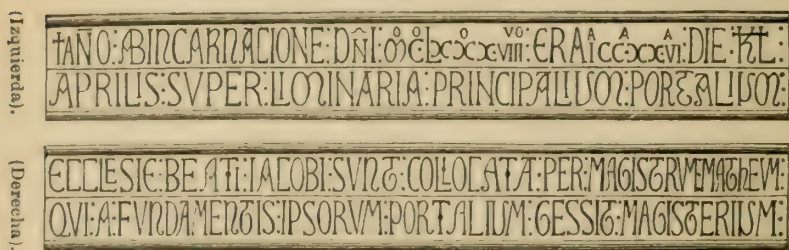 (Izquierda).
†AÑO:ABINCARNACIONE:DÑI:M°C°LXXXVIIIVO:ERAIACCAXXVIA:DIE·KL:
APRILIS:SVPER:LIMINARIA:PRINCIPALIUM:PORTALIUM:
(Derecha).
ECCLESIE:BEATI:IACOBI:SVNT:COLLOCATA:PER:MAGISTRVMMATHEVM:
QVI:A:FVNDAMENTIS:IPSORVM:PORTALIUM:GESSIT:MAGISTERIUM: